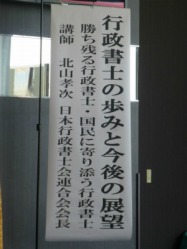 行政書士の歩みと今後の展望
勝ち残る行政書士・国民に寄り添う行政書士
講師 北山孝次 日本行政書士会連合会会長